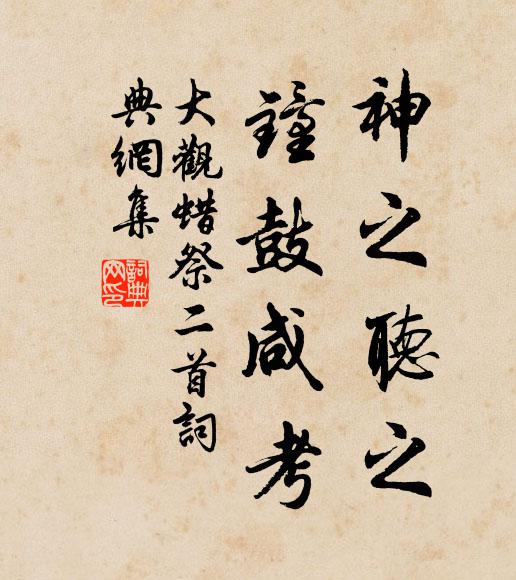 神之聽之
鐘鼓咸考
大觀蜡祭二首詞
典網集
詞典
网印